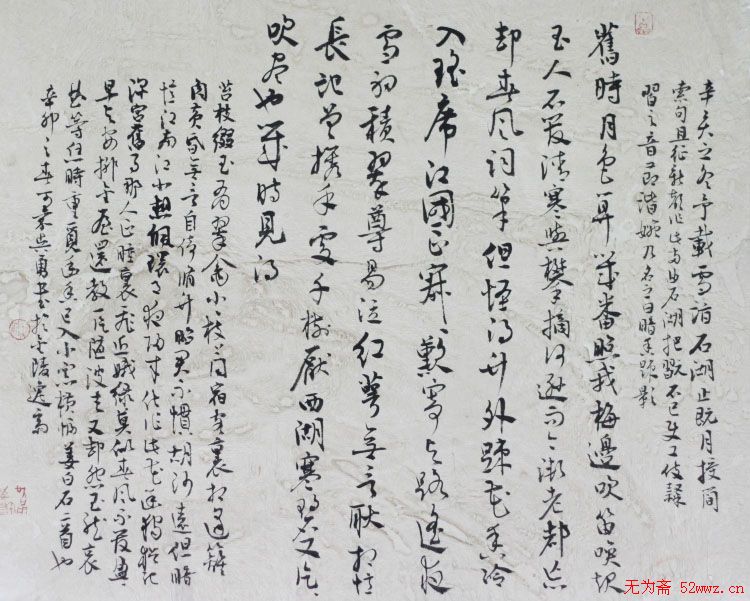 辛亥之冬予載雪詣石湖止既月授簡
索句且征新聲作此兩曲石湖把玩不已使工伎隸
習之音節諧婉乃名之曰暗香疎影
舊時月色算幾番照我梅邊吹笛喚起
玉人不管清寒與攀摘何遜而今漸老都忘
却春風詞筆但怪得竹外疎花香冷
入瑤席江國正寂寂歎寄與路遙夜
雪初積翠尊易泣紅萼無言耿相憶
長記曾攜手處千樹壓西湖寒碧又片片
吹盡也幾時見得
苔枝綴玉有翠禽小小枝上同宿客裏相逢籬
角黃昏無言自倚脩竹昭君不慣胡沙遠但暗
憶江南江北想佩環月夜歸來化作此花幽獨猶記
深宮舊事那人正睡裏飛近蛾綠莫似春風不管盈盈
早與安排金屋還教一片隨波去又却怨玉龍哀
曲等恁時重覓幽香已入小窗橫幅姜白石二首也
辛卯之春書於金陵
无为斋 52wwz.cn